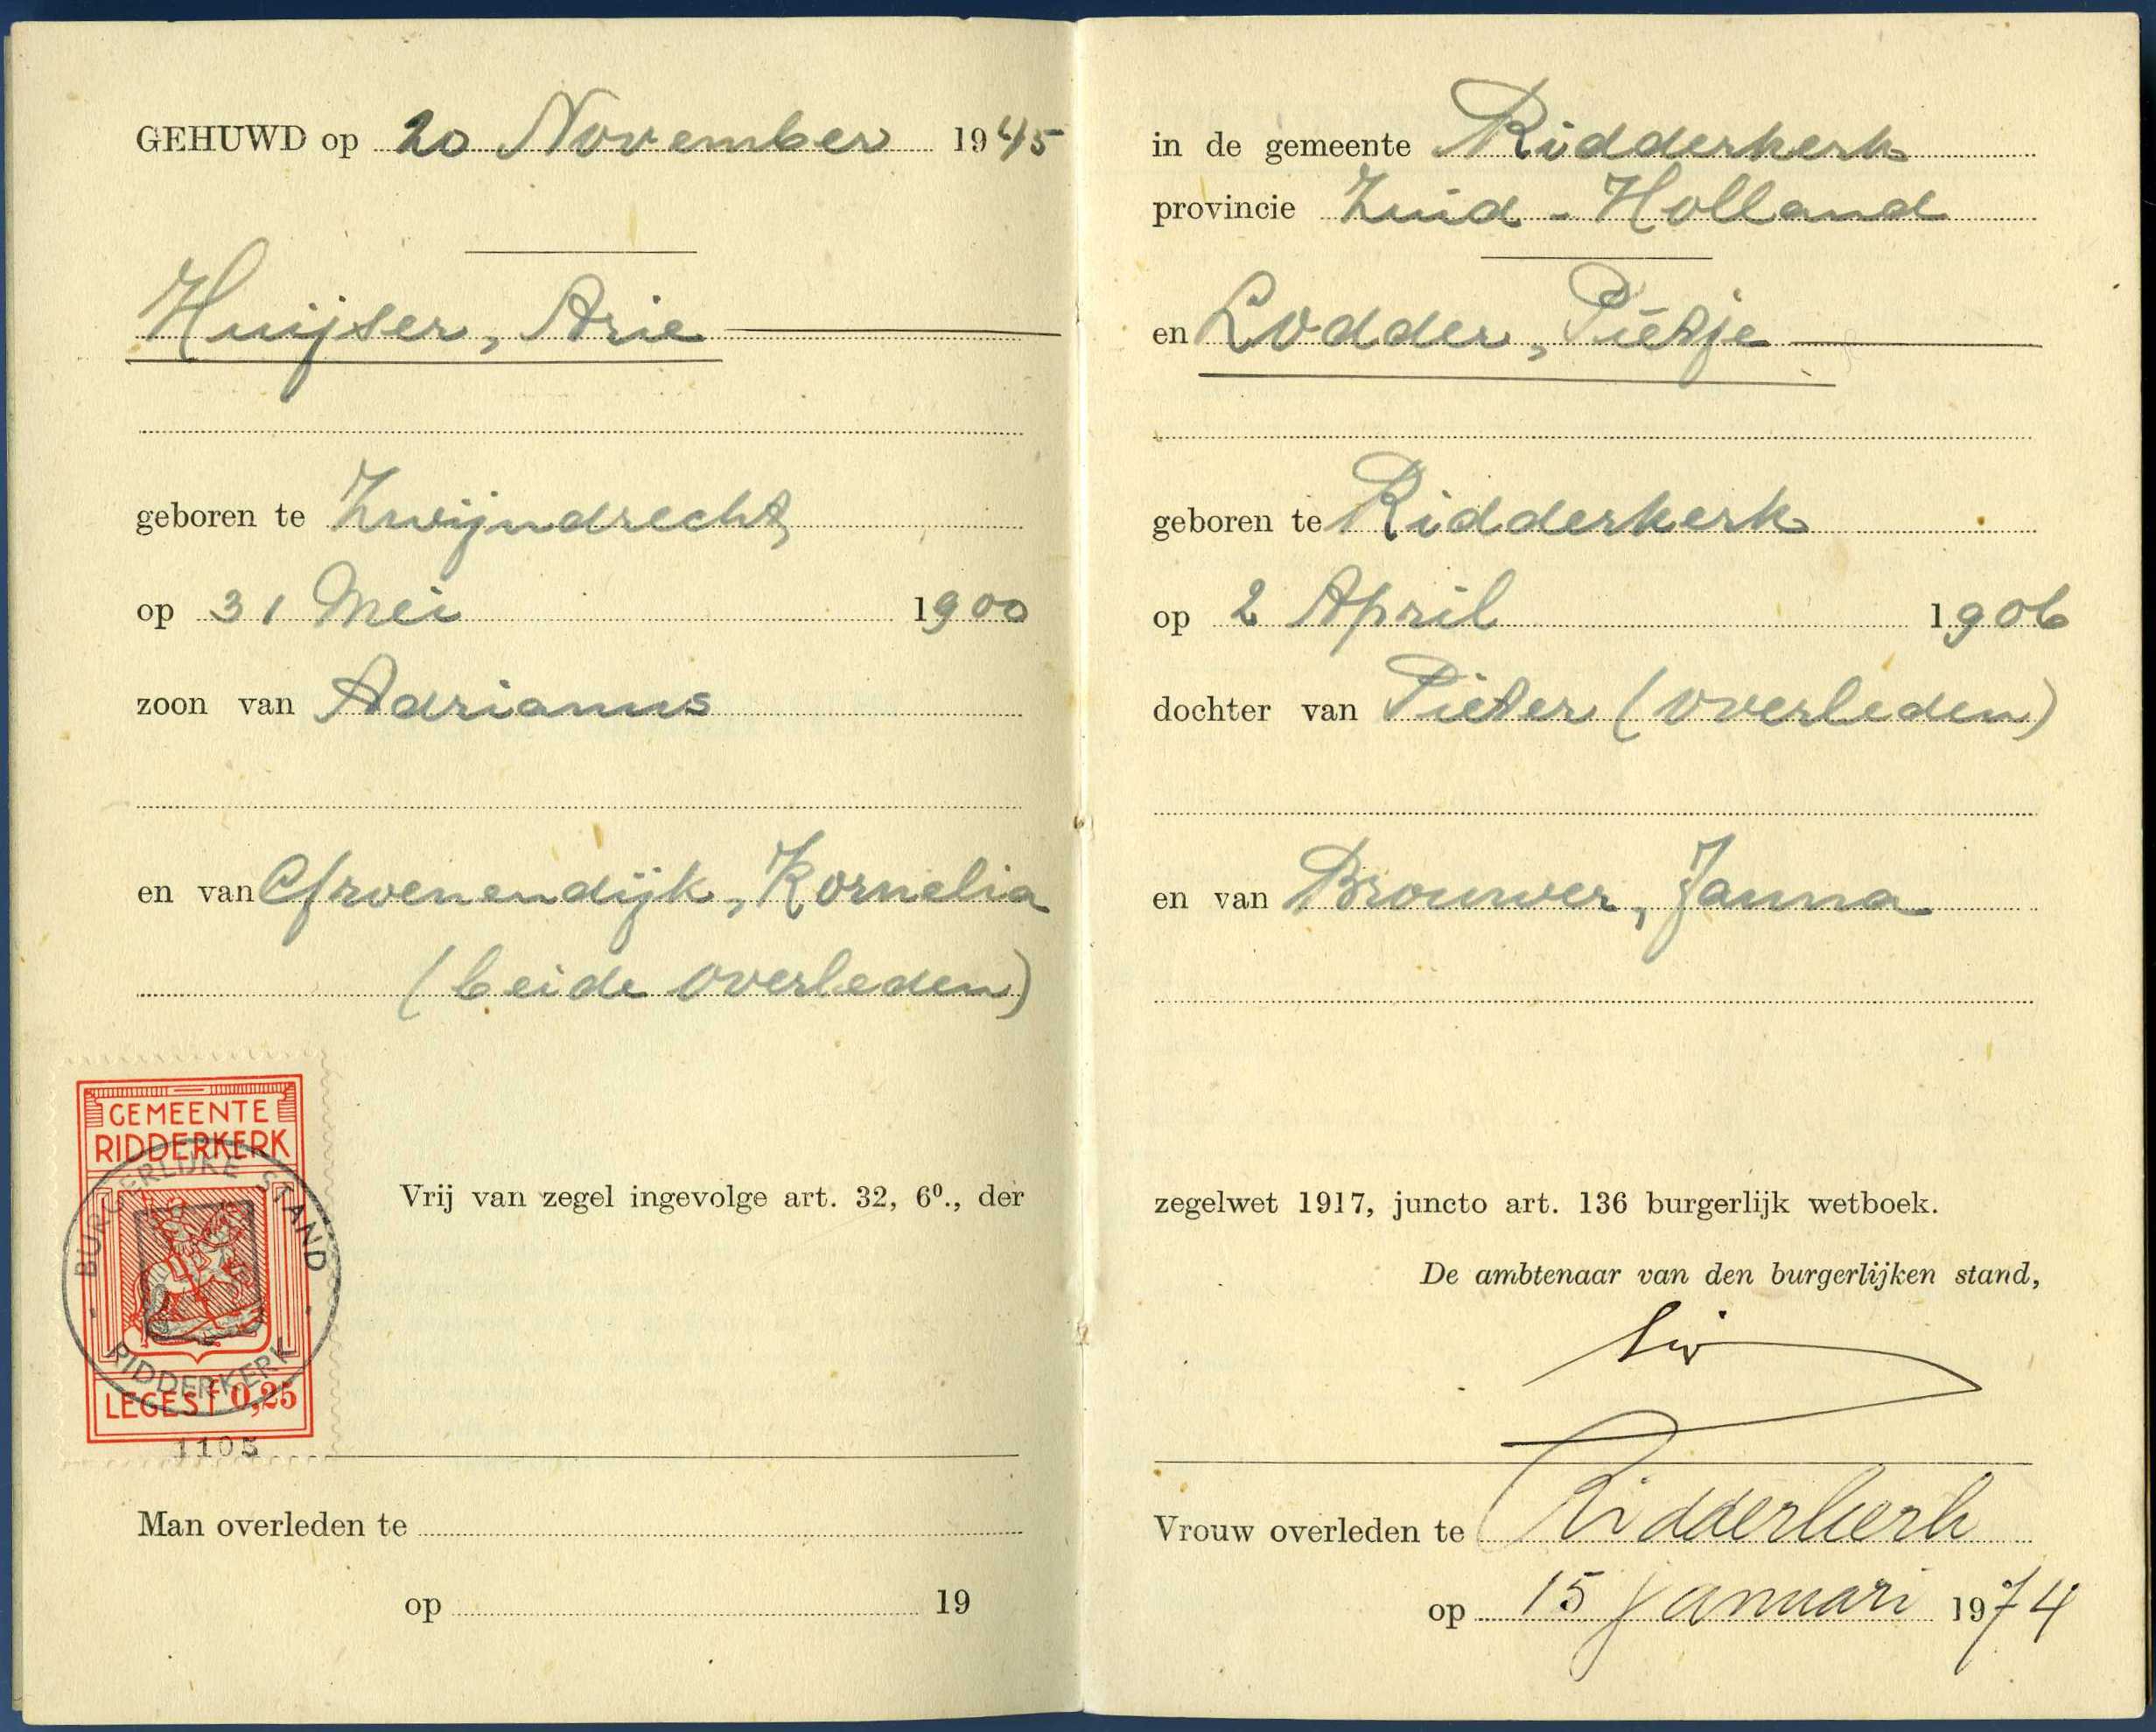 GEHUWD op 20 November 1945
Huijser, Arie
geboren te Zwijndrecht,
op 31 Mei 1900
zoon van Adrianus
en van Groenendijk, Kornelia
(beide overleden)
GEMEENTE
RIDDERKERK
BURGERLIJKE STAND
RIDDERKERK
LEGES f 0,25
1105
Vrij van zegel ingevolge art. 32, 6⁰., der
Man overleden te
op 19
in de gemeente Ridderkerk
provincie Zuid-Holland
en Lodder, Pietje
geboren te Ridderkerk
op 2 April 1906
dochter van Pieter (overleden)
en van Brouwer, Janna
zegelwet 1917, juncto art. 136 burgerlijk wetboek.
De ambtenaar van den burgerlijken stand,
Vrouw overleden te Ridderkerk
op 15 januari 1974